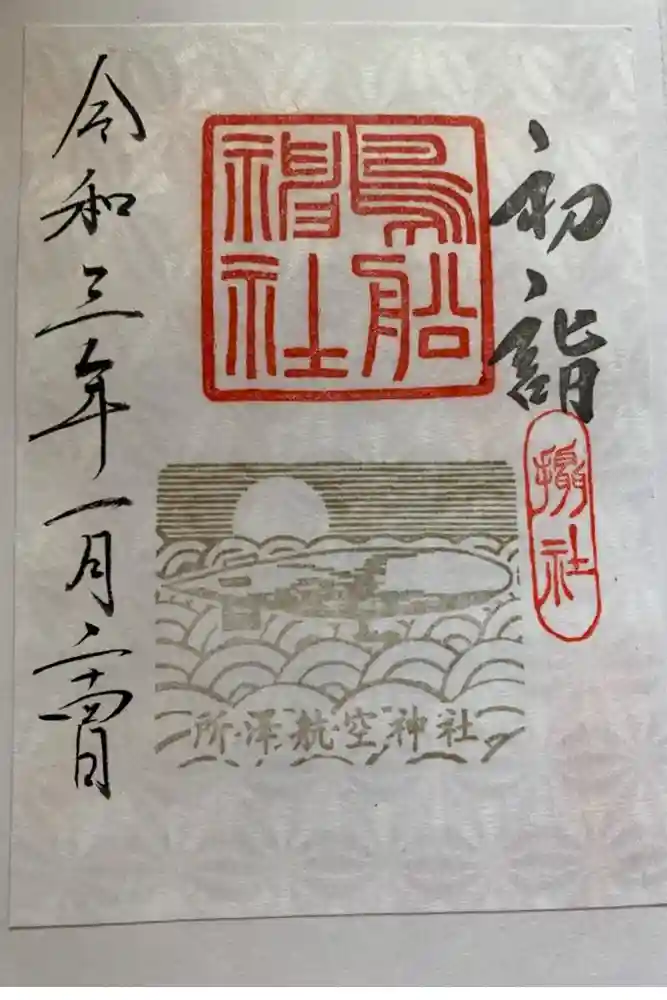 初詣
鳥船
神社
社
所澤航空神社
令和三年一月二十四日